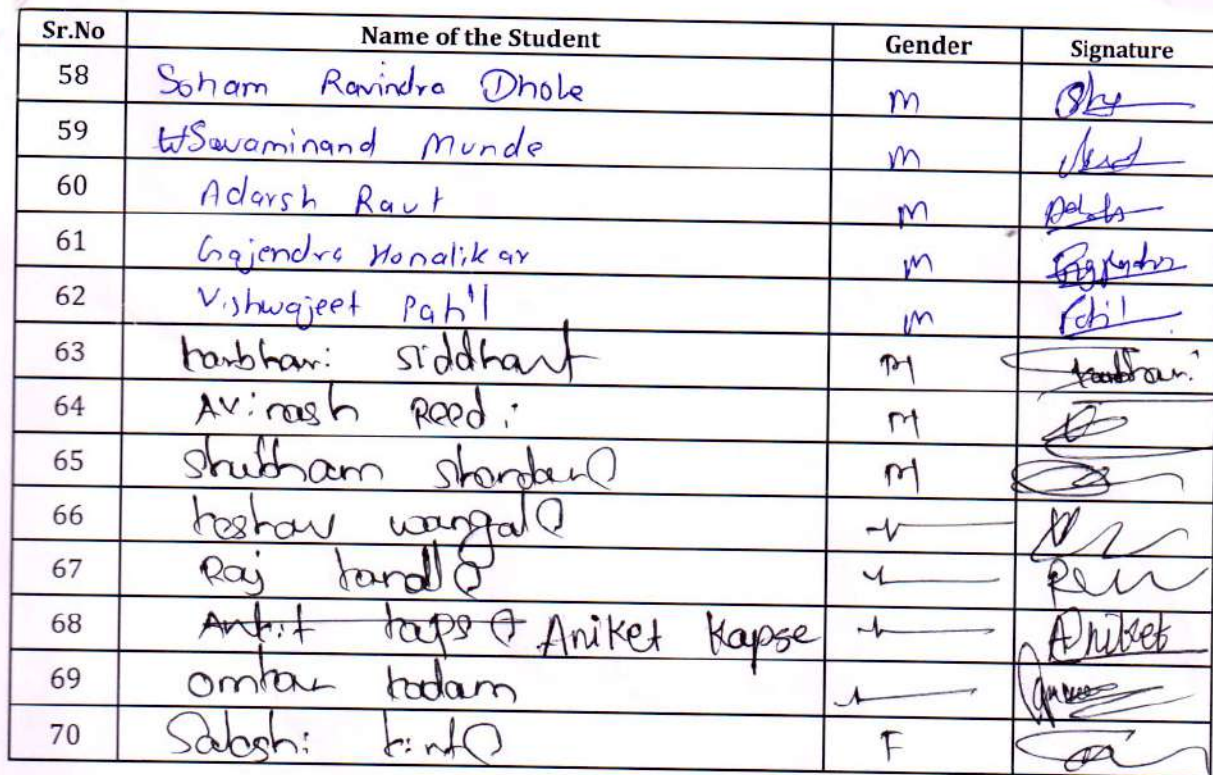 Sr.No Name of the Student Gender Signature
58 Soham Ravindra Dhole M
59 Swaminand Munde M
60 Adarsh Raut M
61 Gajendra Honalikar M
62 Vishwajeet Patil M Patil
63 karbhari siddhant M karbhari
64 Avinash Reedi M
65 Shubham M
66 keshav wangale
67 Raj kandle
68 Ankit kapse Aniket Kapse Aniket
69 omkar kadam
70 F